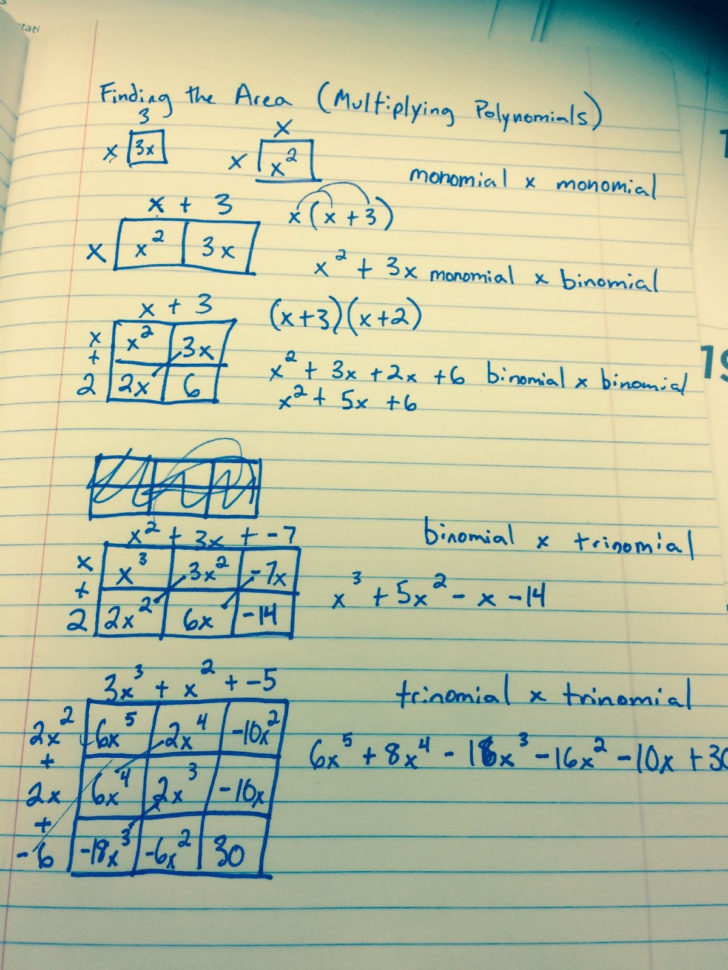 Finding the Area (Multiplying Polynomials)
3
x 3x
x
x x²
monomial x monomial
x + 3
x x² 3x
x(x+3)
x² + 3x monomial x binomial
x + 3
x x² 3x
+
2 2x 6
(x+3)(x+2)
x² + 3x +2x +6 binomial x binomial
x² + 5x +6
x² + 3x + -7
x x³ 3x² -7x
+
2 2x² 6x -14
binomial x trinomial
x³ + 5x² - x - 14
3x³ + x² + -5
2x² 6x⁵ 2x⁴ -10x²
+
2x 6x⁴ 2x³ -10x
+
-6 -18x³ -6x² 30
trinomial x trinomial
6x⁵ + 8x⁴ - 16x³ - 16x² - 10x + 30
19